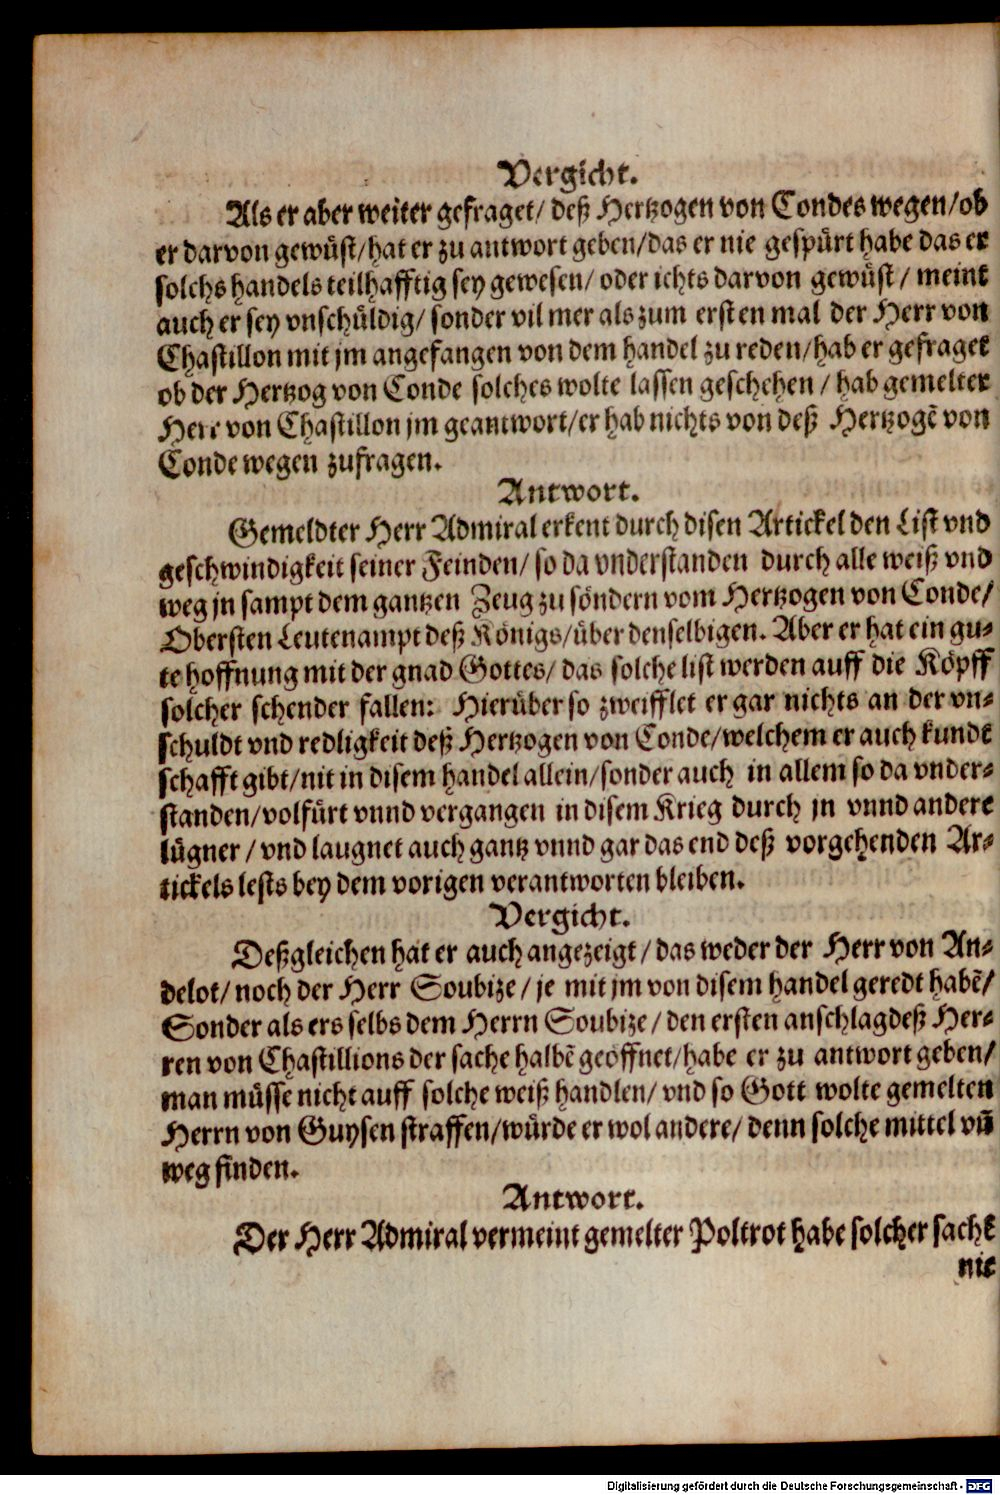 Vergicht.
Als er aber weiter gefraget/ deß Hertzogen von Condes wegen/ob
er darvon gewüst/hat er zu antwort geben/das er nie gespürt habe das er
solchs handels teilhafftig sey gewesen/ oder ichts darvon gewüst/ meint
auch er sey vnschüldig/ sonder vil mer als zum ersten mal der Herr von
Chastillon mit jm angefangen von dem handel zu reden/hab er gefraget
ob der Hertzog von Conde solches wolte lassen geschehen/ hab gemelter
Herr von Chastillon jm geantwort/er hab nichts von deß Hertzogẽ von
Conde wegen zufragen.
Antwort.
Gemeldter Herr Admiral erkent durch disen Artickel den List vnd
geschwindigkeit seiner Feinden/ so da vnderstanden durch alle weiß vnd
weg jn sampt dem gantzen Zeug zu söndern vom Hertzogen von Conde/
Obersten Leutenampt deß Königs/über denselbigen. Aber er hat ein gu-
te hoffnung mit der gnad Gottes/ das solche list werden auff die Köpff
solcher schender fallen: Hierüber so zweifflet er gar nichts an der vn-
schuldt vnd redligkeit deß Hertzogen von Conde/welchem er auch kundt
schafft gibt/nit in disem handel allein/sonder auch in allem so da vnder-
standen/volfürt vnnd vergangen in disem Krieg durch jn vnnd andere
lügner/ vnd laugnet auch gantz vnnd gar das end deß vorgehenden Ar-
tickels lests bey dem vorigen verantworten bleiben.
Vergicht.
Deßgleichen hat er auch angezeigt/ das weder der Herr von An-
delot/ noch der Herr Soubize/ je mit jm von disem handel geredt habẽ/
Sonder als ers selbs dem Herrn Soubize/ den ersten anschlag deß Her-
ren von Chastillions der sache halbẽ geöffnet/habe er zu antwort geben/
man müsse nicht auff solche weiß handlen/ vnd so Gott wolte gemelten
Herrn von Guysen straffen/würde er wol andere/ denn solche mittel vñ
weg finden.
Antwort.
Der Herr Admiral vermeint gemelter Poltrot habe solcher sache
nie
Digitalisierung gefördert durch die Deutsche Forschungsgemeinschaft - DFG